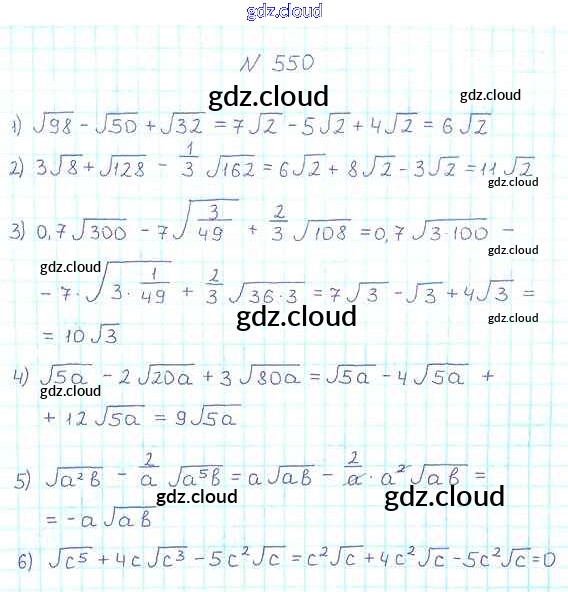 gdz.cloud
N 550
gdz.cloud
gdz.cloud
1) √98 - √50 + √32 = 7√2 - 5√2 + 4√2 = 6√2
2) 3√8 + √128 - 1/3 √162 = 6√2 + 8√2 - 3√2 = 11√2
gdz.cloud
3) 0,7√300 - 7√(3/49) + 2/3 √108 = 0,7√(3·100) -
gdz.cloud
gdz.cloud
- 7·√(3·1/49) + 2/3 √(36·3) = 7√3 - √3 + 4√3 =
gdz.cloud
gdz.cloud
= 10√3
4) √5a - 2√20a + 3√80a = √5a - 4√5a +
gdz.cloud
gdz.cloud
+ 12√5a = 9√5a
5) √a²b - 2/a √a⁵b = a√ab - 2/a · a²√ab =
gdz.cloud
gdz.cloud
= -a√ab
6) √c⁵ + 4c√c³ - 5c²√c = c²√c + 4c²√c - 5c²√c = 0